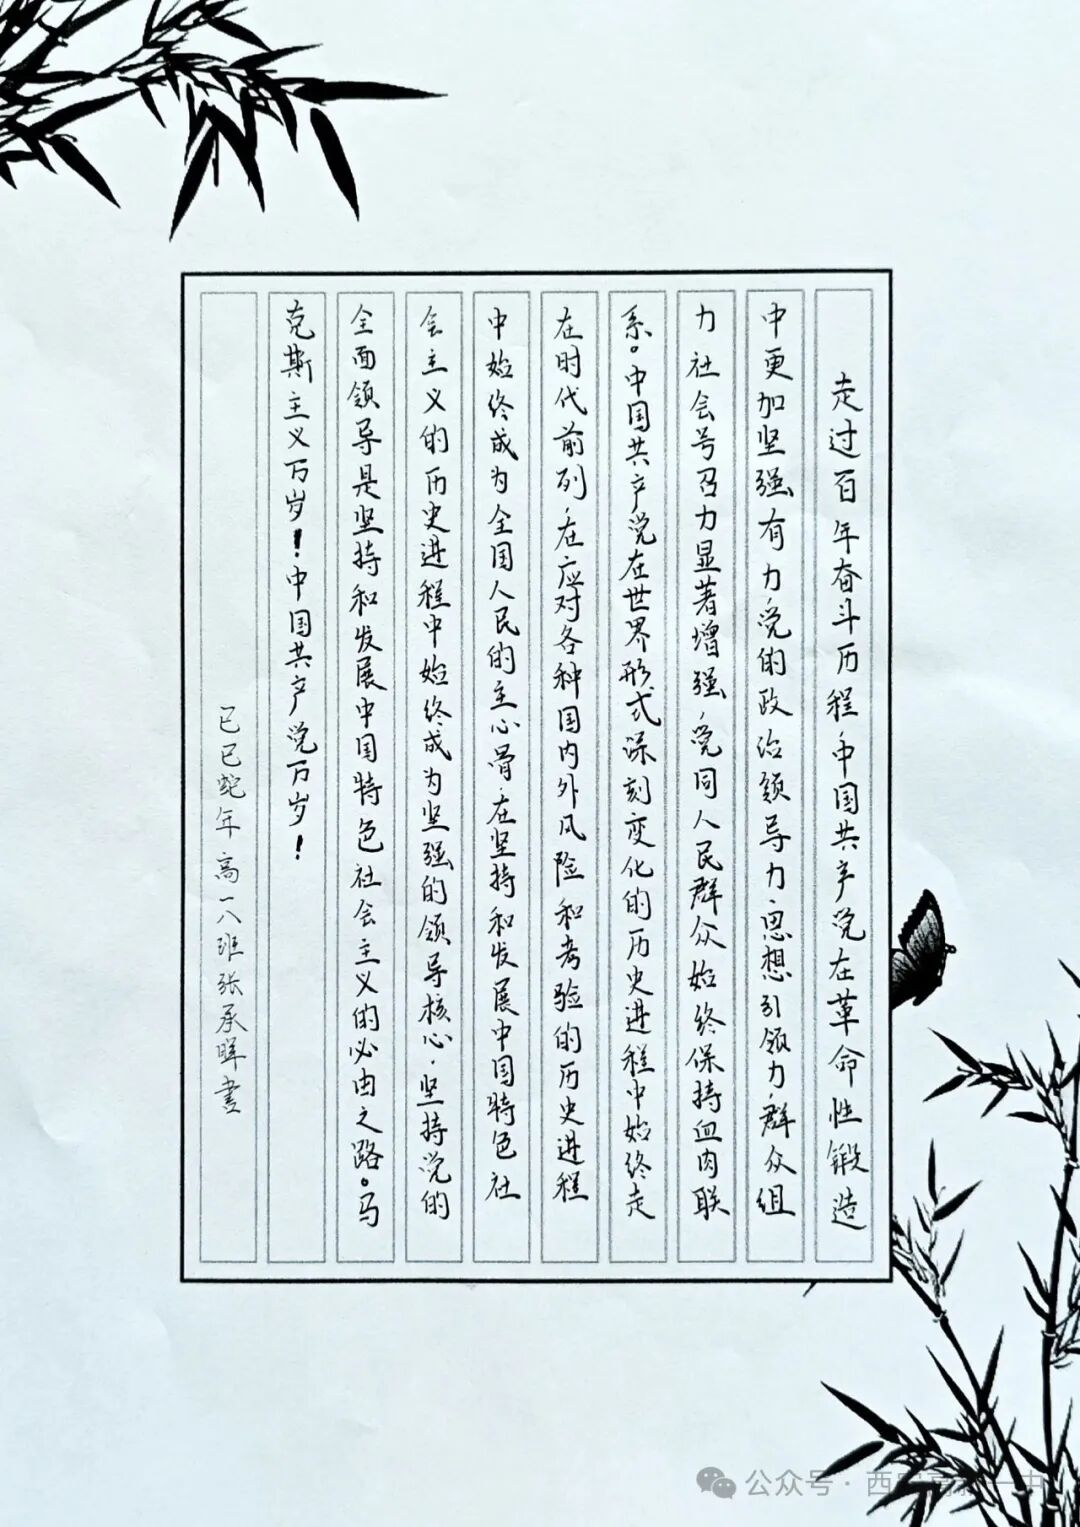 走过百年奋斗历程,中国共产党在革命性锻造
中更加坚强有力,党的政治领导力,思想引领力,群众组
力社会号召力显著增强,党同人民群众始终保持血肉联
系。中国共产党在世界形式深刻变化的历史进程中始终走
在时代前列,在应对各种国内外风险和考验的历史进程
中始终成为全国人民的主心骨,在坚持和发展中国特色社
会主义的历史进程中始终成为坚强的领导核心.坚持党的
全面领导是坚持和发展中国特色社会主义的必由之路。马
克斯主义万岁!中国共产党万岁!
己巳蛇年高一八班张承晖书
公众号·西安高新一中